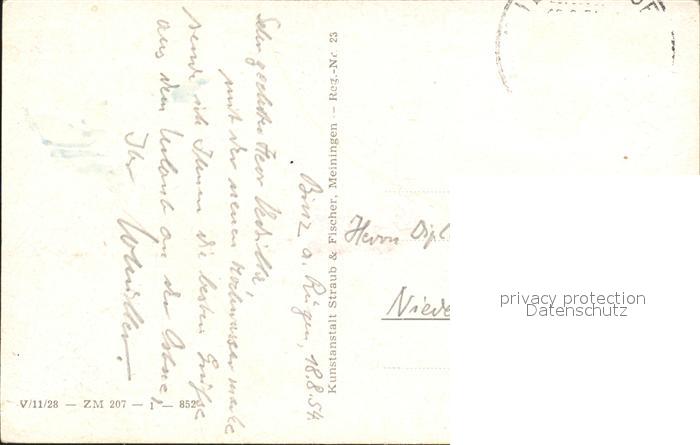 Binz a. Rügen, 18.8.54
Sehr geehrter Herr
mit der neuen Hochwassermarke
sende ich Ihnen die besten Grüße
aus dem Urlaub an der Ostsee,
Ihr
Kunstanstalt Straub & Fischer, Meiningen – Reg.-Nr. 23
Herrn Dipl
Niede
privacy protection
Datenschutz
V/11/28 — ZM 207 — 1 — 852